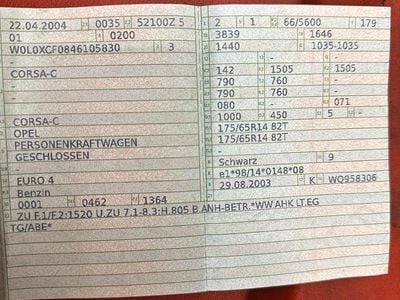 22.04.2004 0035 52100Z 5
01 0200
W0L0XCF0846105830 3
-
CORSA-C
-
-
CORSA-C
OPEL
PERSONENKRAFTWAGEN
GESCHLOSSEN
-
EURO 4
Benzin
0001 0462 1364
ZU F.1/F.2:1520 U.ZU 7.1-8.3:H.805 B.ANH-BETR.*WW.AHK LT.EG
TG/ABE*
2 1 66/5600 179
3839 1646
1440 1035-1035
- -
142 1505 1505
790 760 -
790 760 -
080 - 071
1000 450 5 -
175/65R14 82T
175/65R14 82T
-
Schwarz 9
e1*98/14*0148*08
29.08.2003 K WQ958306